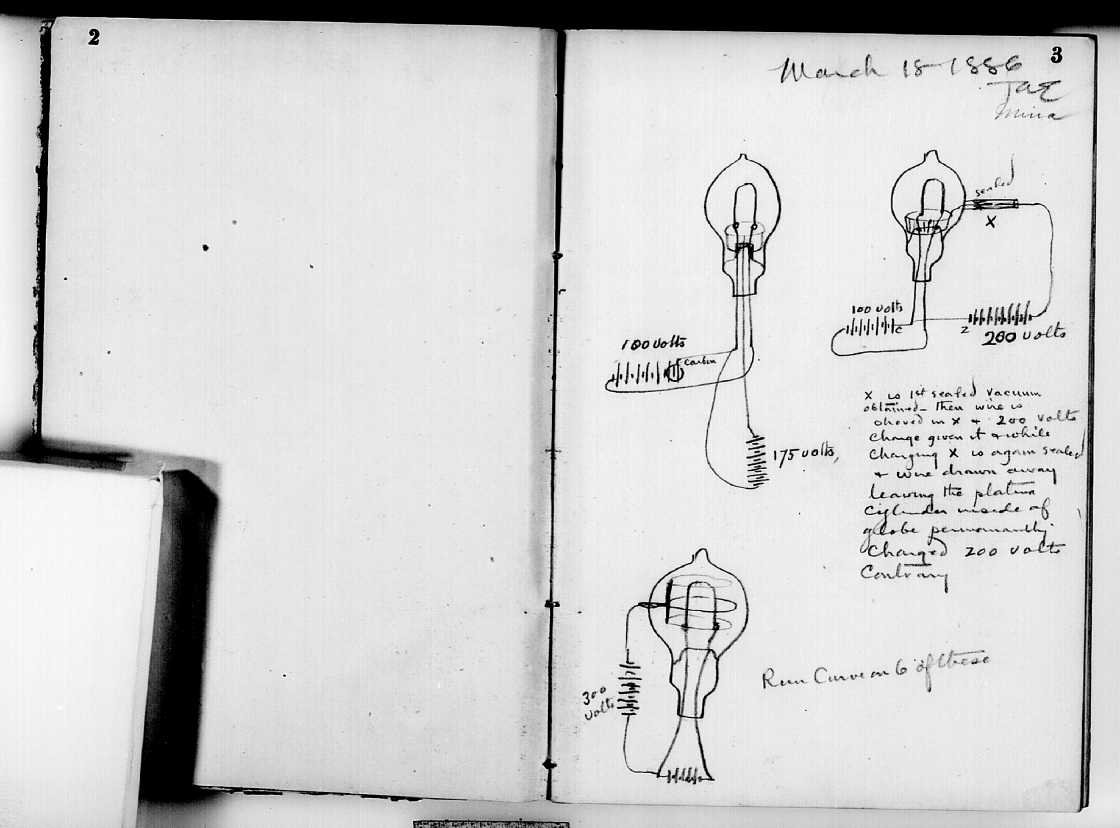 2
3
March 18 1886
TAE
Mina
sealed
X
100 volts
C
Z
200 volts
100 volts
carbon
175 volts,
X is 1st sealed vacuum
obtained - then wire is
shoved in X & 200 volts
Charge given it & while
Charging X is again sealed
& wire drawn away
leaving the platina
Cylinder inside of
globe permanantly
Charged 200 volts
Contrary
300
volts
Run Curve on 6 of these